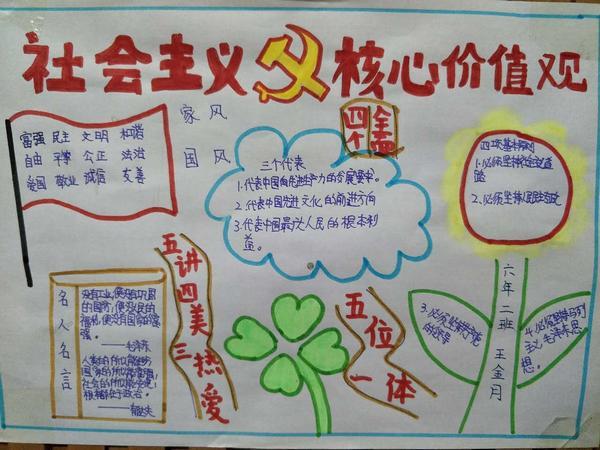 社会主义核心价值观
富强 民主 文明 和谐
自由 平等 公正 法治
爱国 敬业 诚信 友善
家风
国风
四个全面
三个代表
1.代表中国先进生产力的发展要求。
2.代表中国先进文化的前进方向
3.代表中国最广大人民的根本利
益。
四项基本原则
1.必须坚持社会主义道
路
2.必须坚持人民民主专政
3.必须坚持共产党
的领导
4.必须坚持马列
主义毛泽东思
想。
六年二班 王金月
五讲四美三热爱
五位一体
名人名言
没有工业,便没有巩固
的国防,便没有人民的
福利,便没有国家的富
强。
——毛泽东